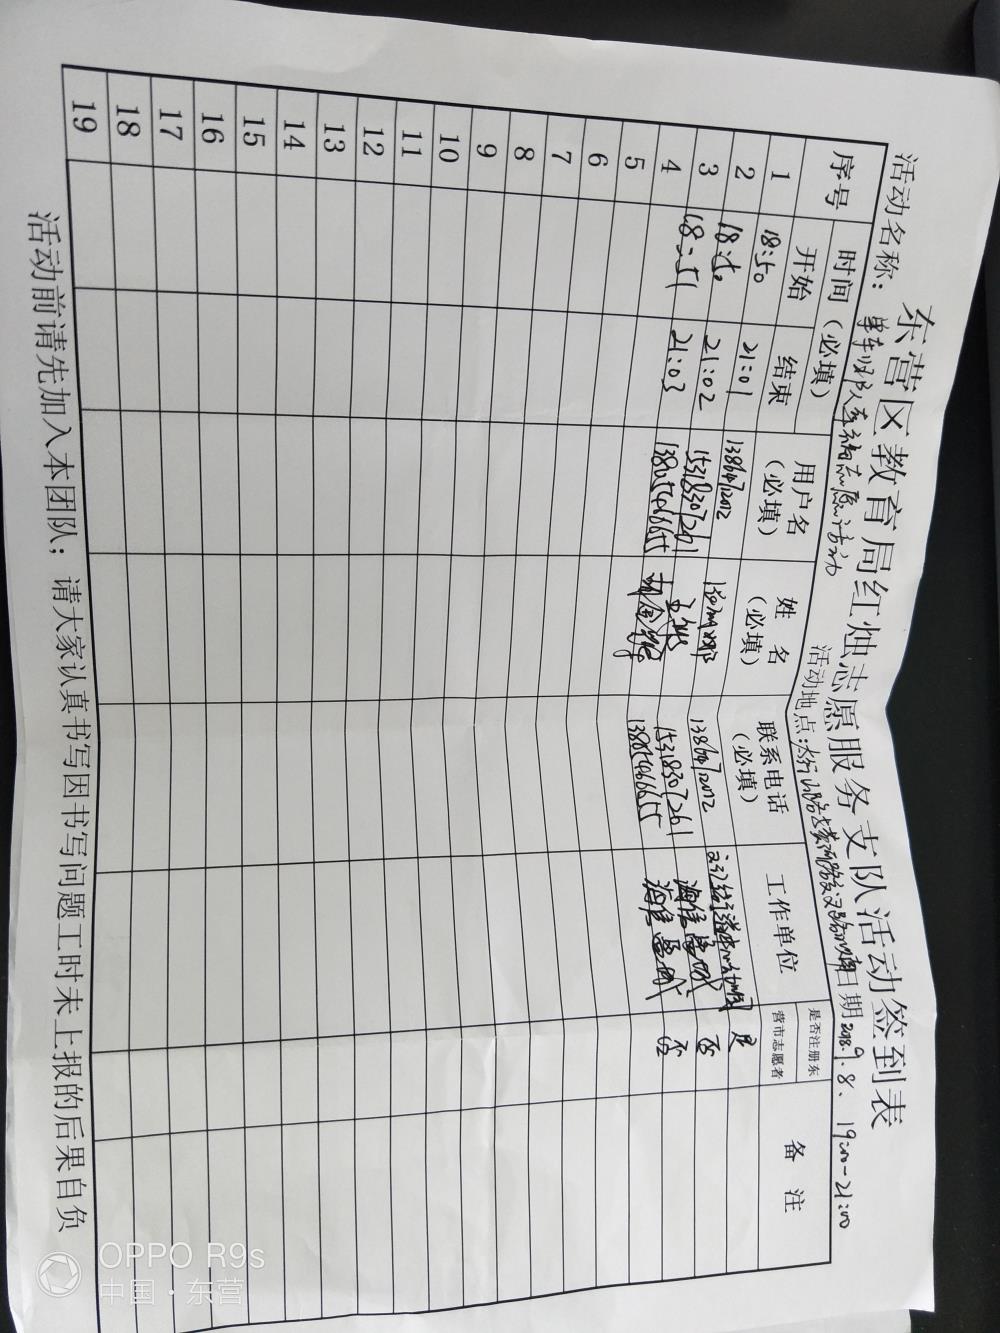 东营区教育局红烛志愿服务支队活动签到表
活动名称：单车归队幸福志愿活动 活动地点： 日期2018.9.8. 19:00-21:00
序号 时间（必填） 用户名（必填） 姓名（必填） 联系电话（必填） 工作单位 是否注册东营市志愿者 备注
开始 结束
1 18:50 21:01 13864712012 13864712012 是
2 18:50 21:02 15318307261 15318307261 海信 否
3 18:51 21:03 13805466655 13805466655 海信 否
4
5
6
7
8
9
10
11
12
13
14
15
16
17
18
19
活动前请先加入本团队；请大家认真书写因书写问题工时未上报的后果自负
OPPO R9s
中国·东营